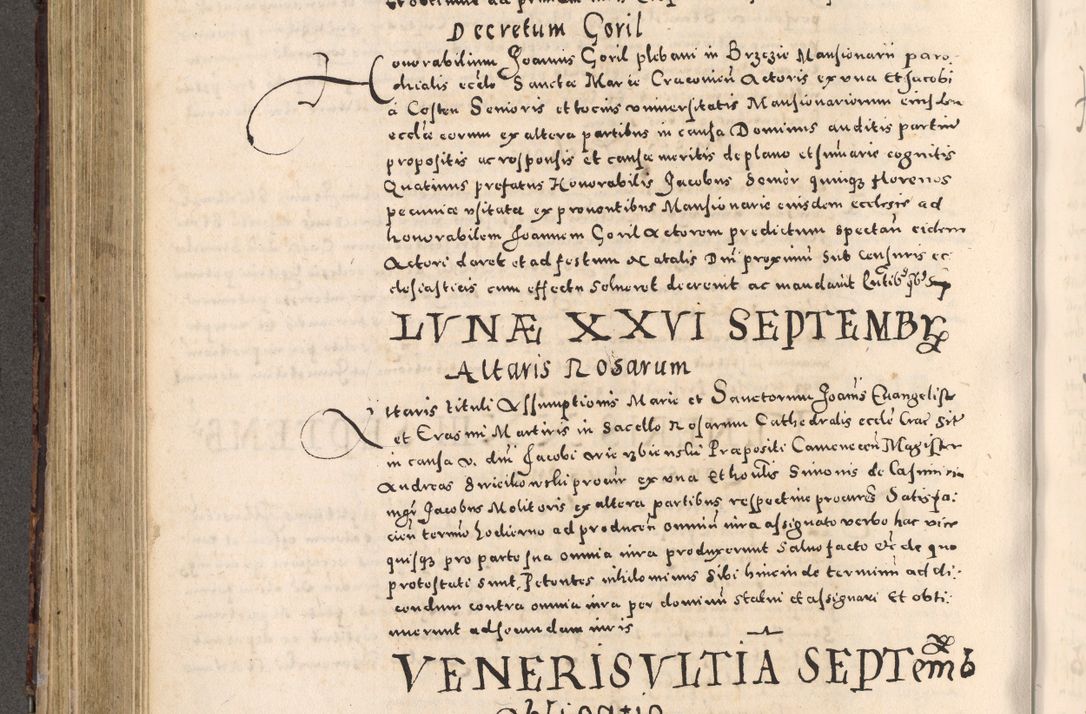 Decretum Goril
Honorabilium Joannis Goril plebani in Brzezie Mansionarii paro-
chialis eccłe Sanctæ Mariæ Cracovień Actoris ex una Et Jacobi
a Costen Senioris et tocius universitatis Mansionariorum eiusdem
eccliæ eorum ex altera partibus in causa Dominus auditis partiu
propositis ac responsis et causæ meritis de plano et sumarie cognitis
Quatinus prefatus Honorabilis Jacobus Senior quinqz florenos
pecuniæ usitatæ ex proventibus Mansionarie eiusdem ecclesie ad
honorabilem Joannem Goril Actorem predictum spectań eidem
Actori daret et ad festum Natalis Dni proximu sub censuris ec-
clesiasticis cum effectu solveret decrevit ac mandavit
LVNÆ XXVI SEPTEMBR
Altaris Rosarum
Altaris tituli Assumptionis Marie et Sanctorum Joanis Evangeliste
et Erasmi Martiris in Sacello Rosarum Cathedralis eccłe Crac sit
in causa v. dni Jacobi Wierzbienski Præpositi Camenecen Magister
Andreas procur ex una Et honlis Simonis de Casimiria
mgri Jacobus Molitoris ex altera partibus respective procures Satisfa-
cien termio hodierno ad producen omniu iura assignato verbo hac vice
quisqz pro parte sua omnia iura produxerunt salvo facto etc de quo
protestati sunt, Petentes nihilominus sibi hincinde terminu ad di-
cendum contra omnia iura per dominu statui et assignari Et obti-
nuerunt ad secundam iuris
VENERIS VLTIA SEPTemb
Obligatio